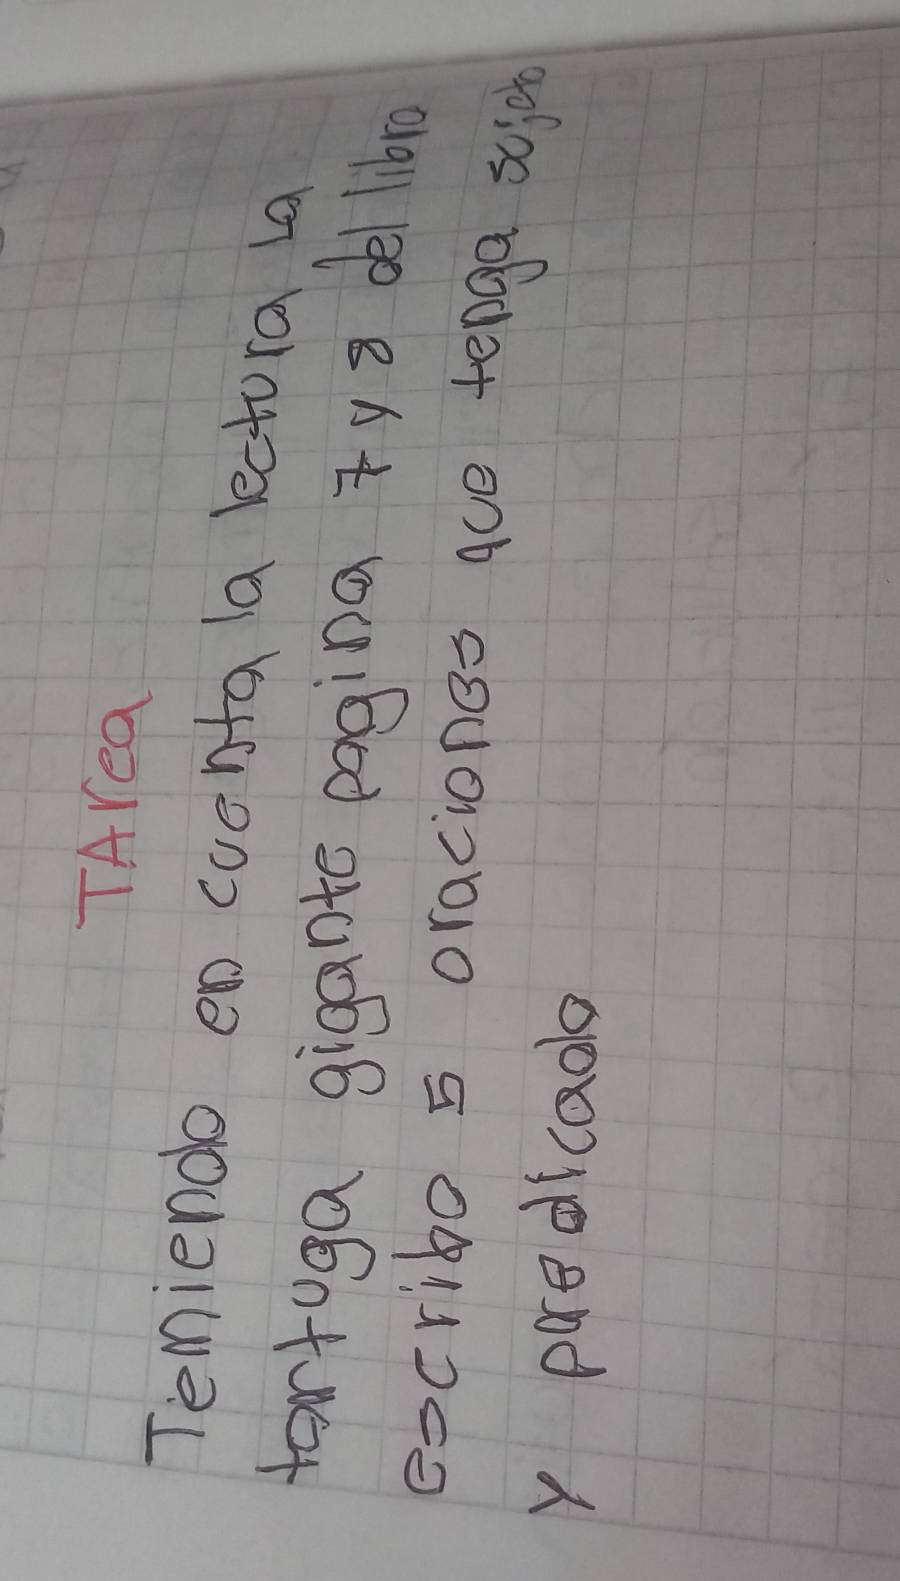 TArea
Teniendo en cuenta la lectura la
tortuga gigante pagina 7 y 8 del libro
escribo 5 oraciones que tenga sujeto
y predicado